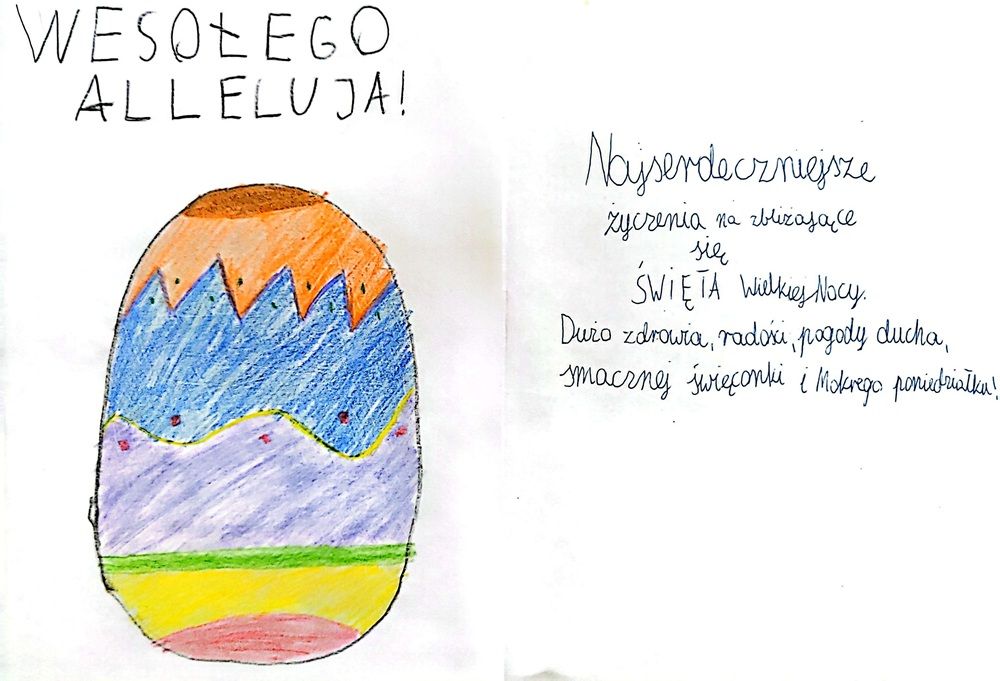 WESOŁEGO
ALLELUJA!
Najserdeczniejsze
życzenia na zbliżające
się
ŚWIĘTA Wielkiej Nocy.
Dużo zdrowia, radości, pogody ducha,
smacznej święconki i Mokrego poniedziałku!